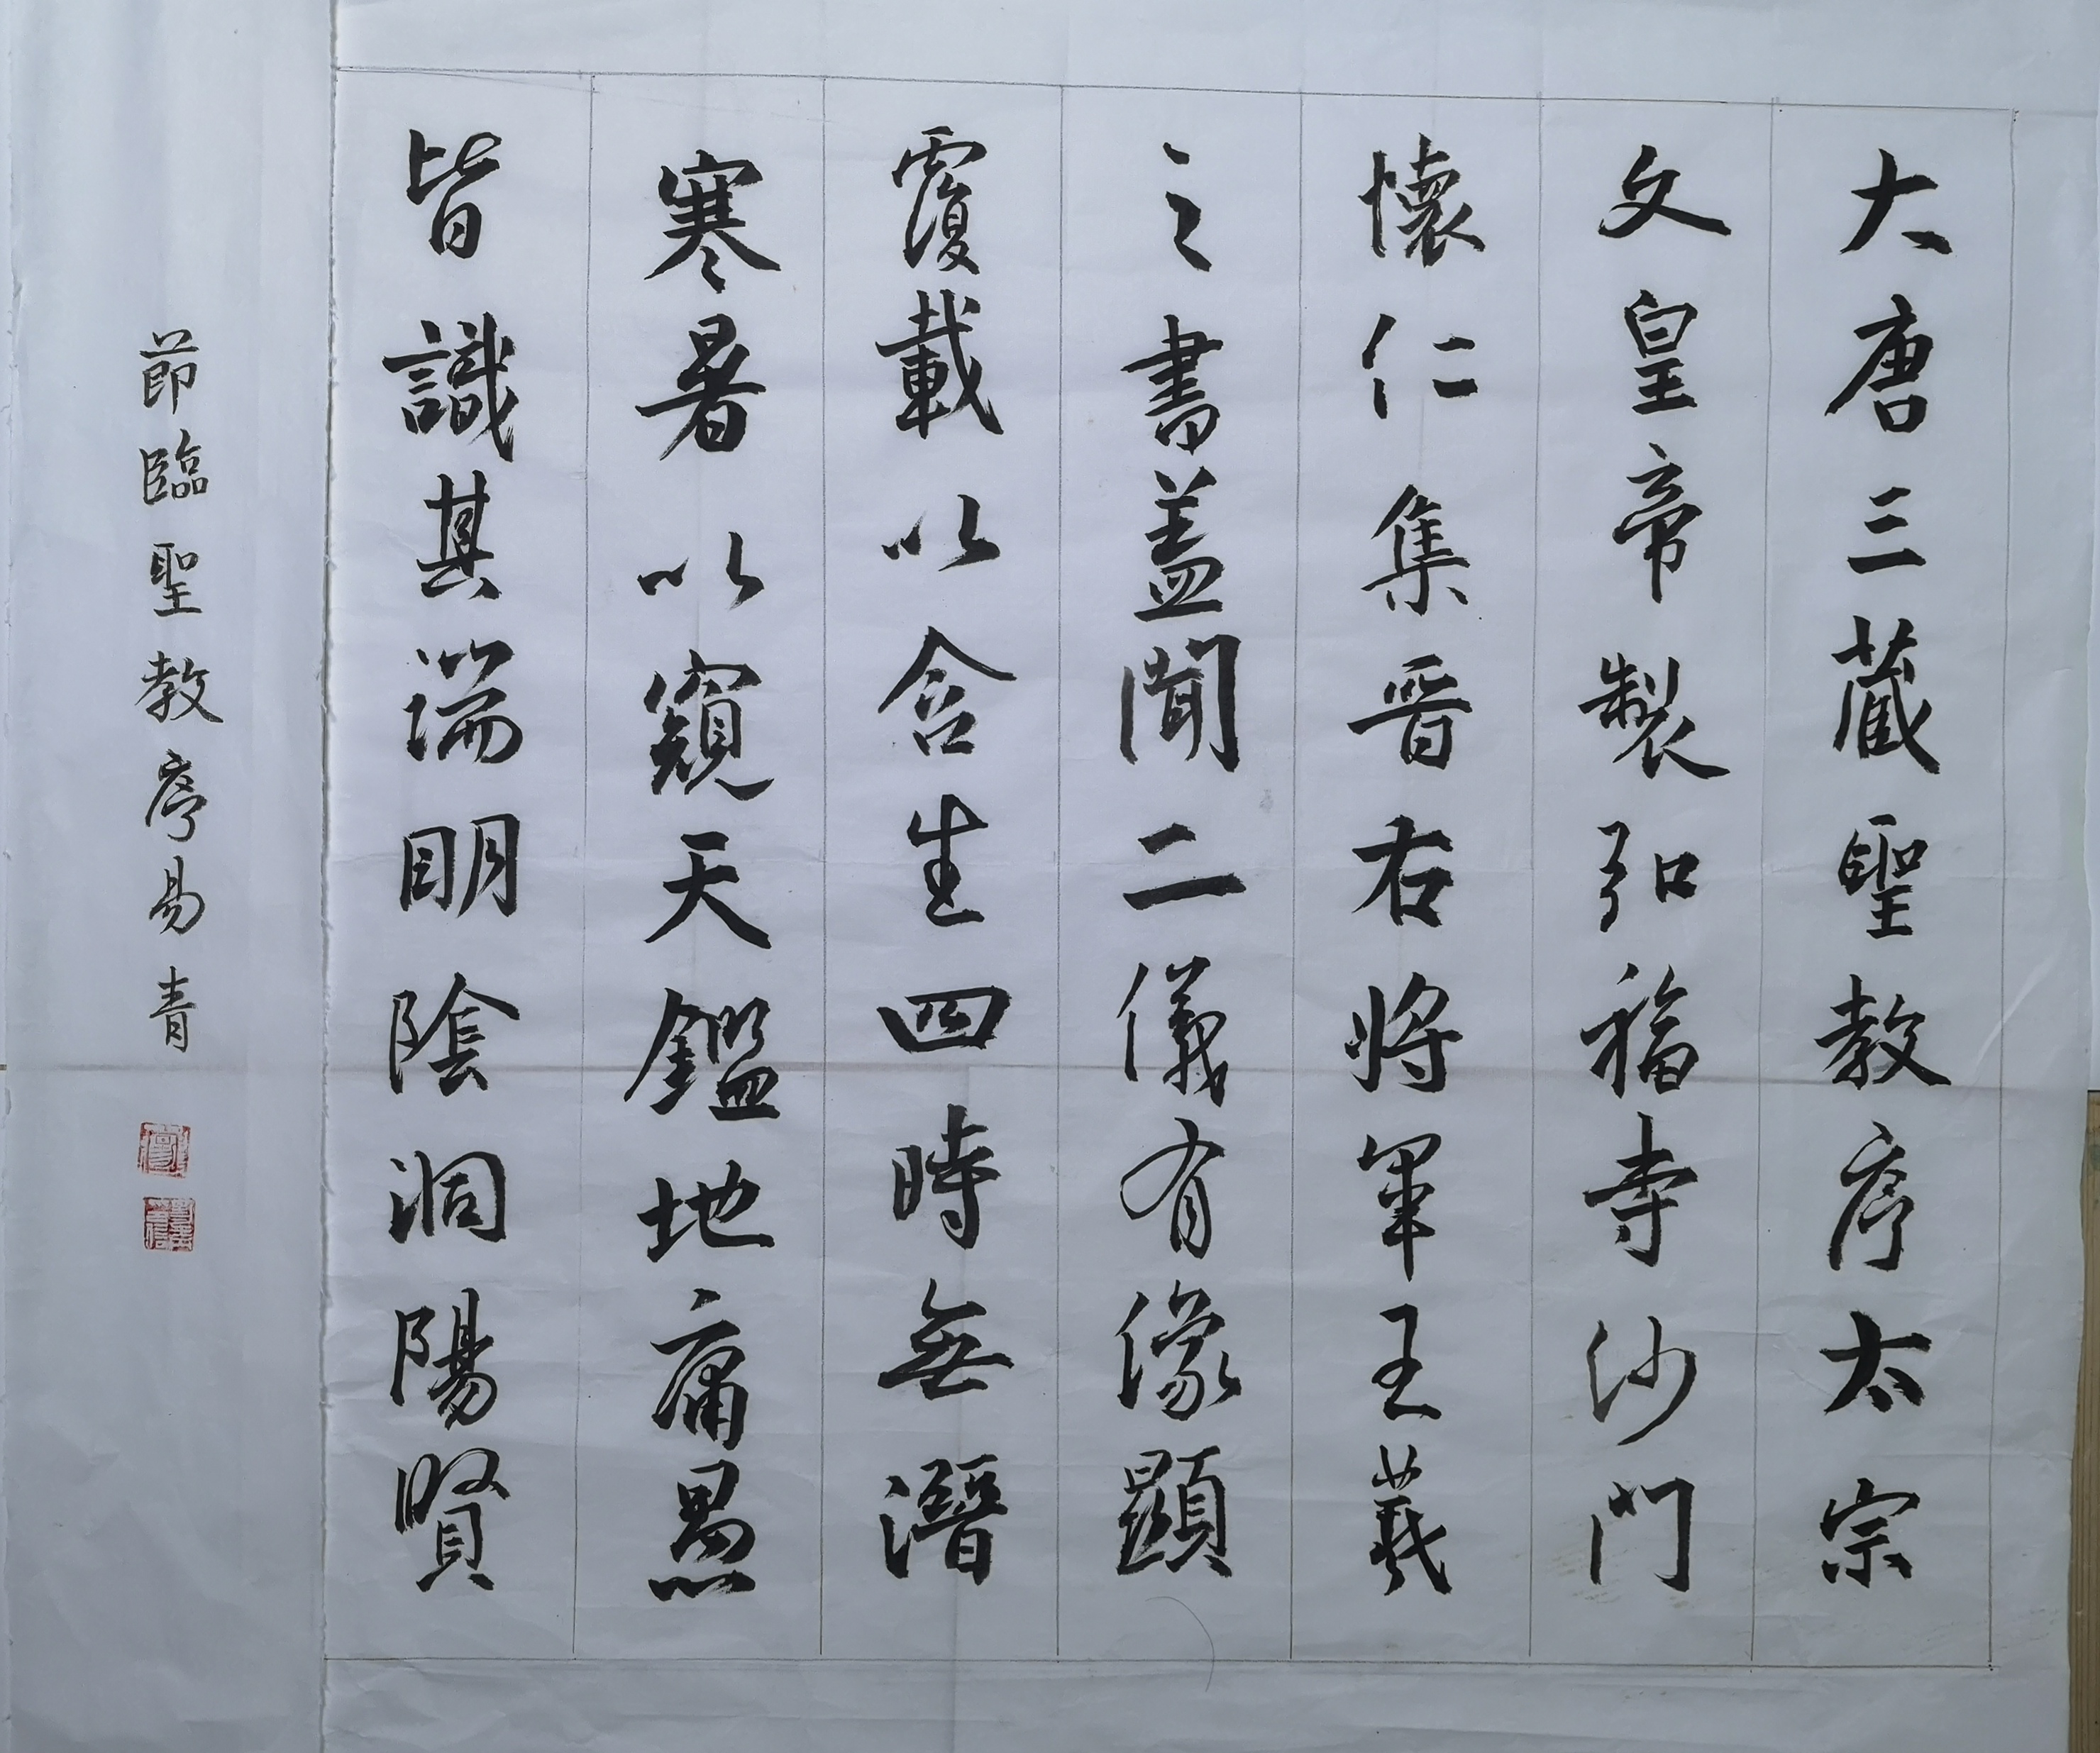 大唐三藏聖教序太宗
文皇帝製弘福寺沙門
懷仁集晋右将軍王羲
之書盖聞二儀有像顯
覆載以含生四時無潛
寒暑以窺天鑑地庸愚
皆識其端明陰洞陽賢
莭臨聖教序易青